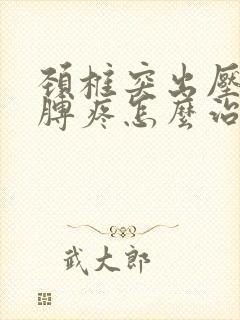 頸椎突出壓
膊疼怎麼治
武大郎